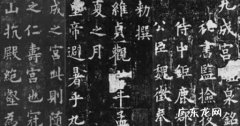 九成宮醴泉銘
祕書監檢校
侍中鉅鹿郡
公臣魏徵奉
勅撰
維貞觀六年孟
夏之月
皇帝避暑乎九
成之宮此則隨
之仁壽宮也冠
山抗殿絕壑為